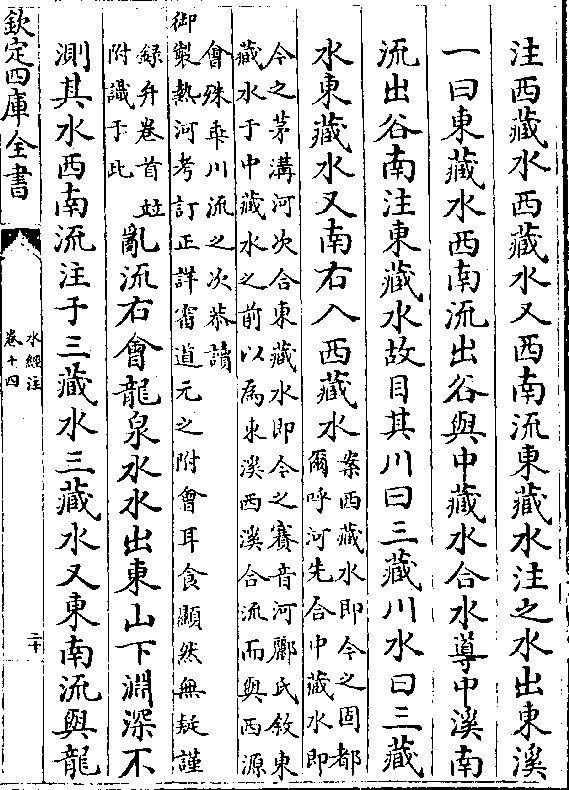 注西藏水西藏水又西南流東藏水注之水出東溪
一曰東藏水西南流出谷與中藏水合水導中溪南
流出谷南注東藏水故目其川曰三藏川水曰三藏
水東藏水又南右入西藏水
案西藏水即今之固都
爾呼河先合中藏水即
今之茅溝河次合東藏水即今之賽音河酈氏敘東
藏水于中藏水之前以為東溪西溪合流而與西源
會殊乖川流之次恭讀
御製熱河考訂正詳審道元之附會耳食顯然無疑謹
録弁卷首竝
附識于此
亂流右會龍泉水水出東山下淵深不
測其水西南流注于三藏水三藏水又東南流與龍
欽定四庫全書
水經注
卷十四
二十